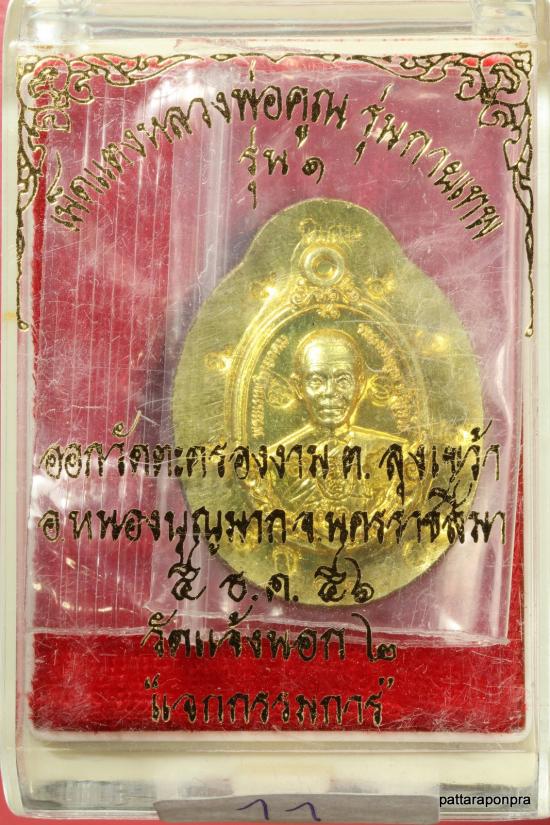 เม็ดแตงหลวงพ่อคูณ รุ่นกายเทพ
รุ่น ๑
ออกวัดตะครองงาม ต. ลุงเขว้า
อ.หนองบุญมาก จ.นครราชสีมา
๕ ธ.ค. ๕๖
วัดแจ้งนอก ๒
"แจกกรรมการ"
11
pattaraponpra